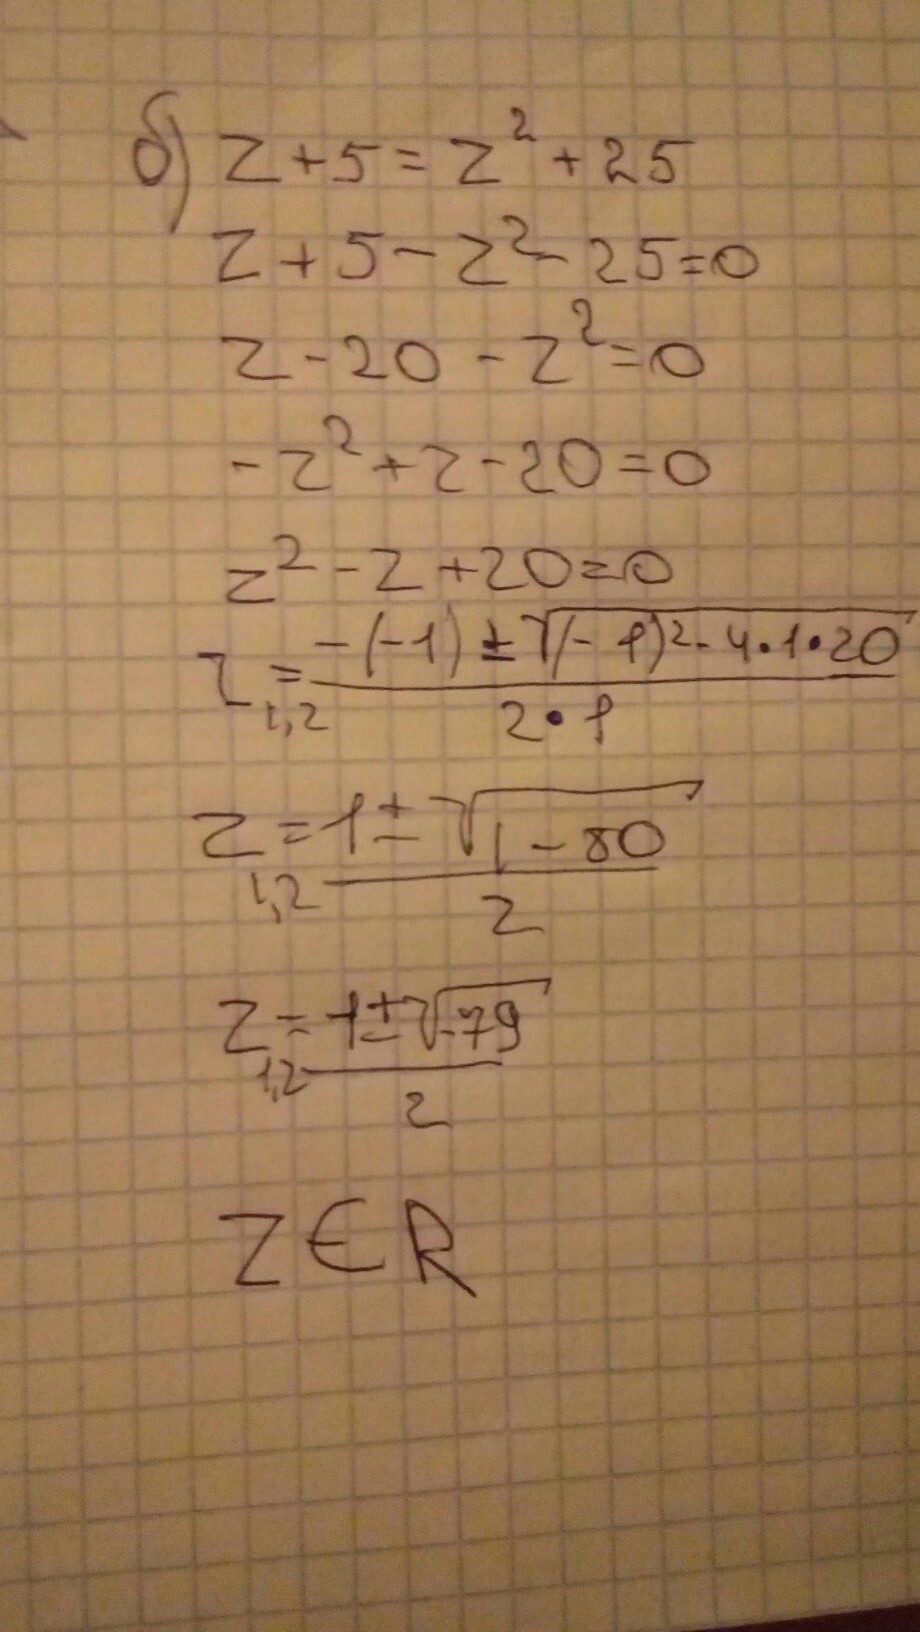 б) z + 5 = z² + 25
z + 5 - z² - 25 = 0
z - 20 - z² = 0
- z² + z - 20 = 0
z² - z + 20 = 0
z₁,₂ = (-(-1) ± √((-1)² - 4 • 1 • 20)) / (2 • 1)
z₁,₂ = (1 ± √(1 - 80)) / 2
z₁,₂ = (1 ± √(-79)) / 2
z ∈ R